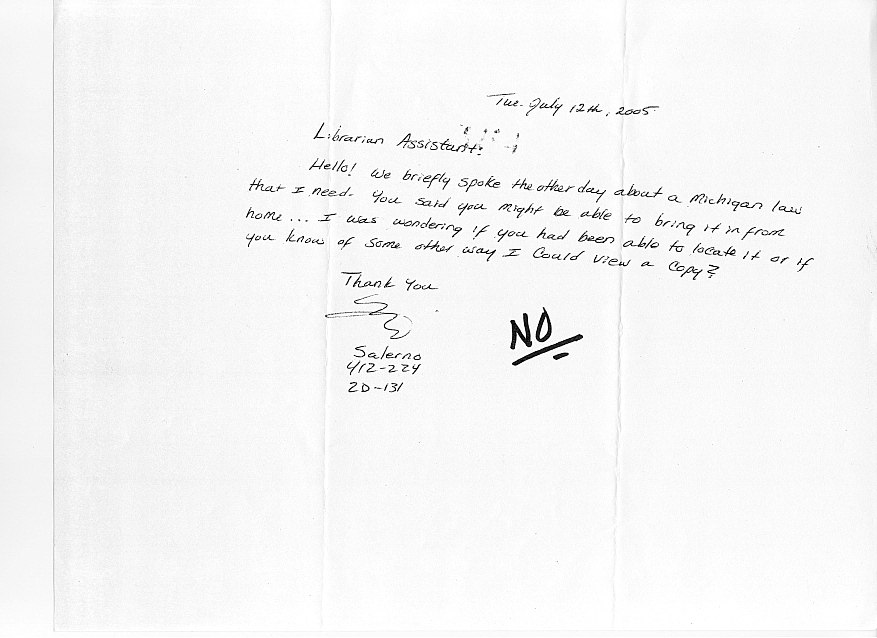 Tue. July 12th, 2005
Librarian Assistant:
Hello! We briefly spoke the other day about a Michigan law
that I need. You said you might be able to bring it in from
home... I was wondering if you had been able to locate it or if
you know of some other way I could view a copy?
Thank You
Salerno
412-224
2D-131
NO